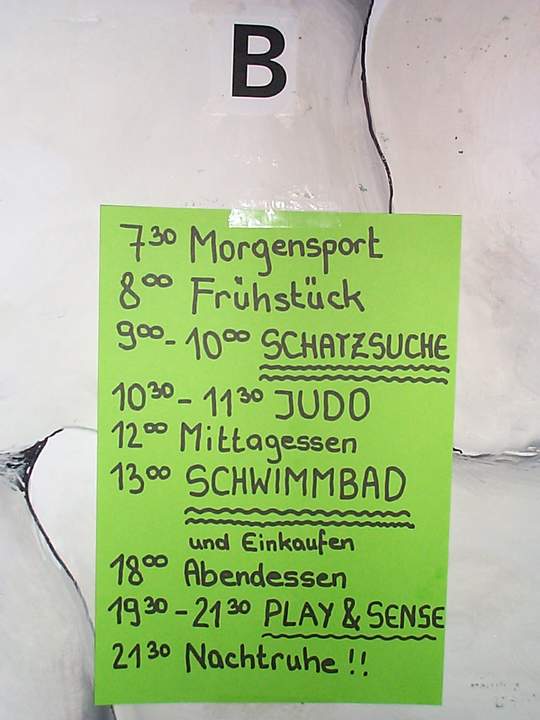 B
7³⁰ Morgensport
8⁰⁰ Frühstück
9⁰⁰- 10⁰⁰ SCHATZSUCHE
10³⁰- 11³⁰ JUDO
12⁰⁰ Mittagessen
13⁰⁰ SCHWIMMBAD
und Einkaufen
18⁰⁰ Abendessen
19³⁰-21³⁰ PLAY & SENSE
21³⁰ Nachtruhe!!